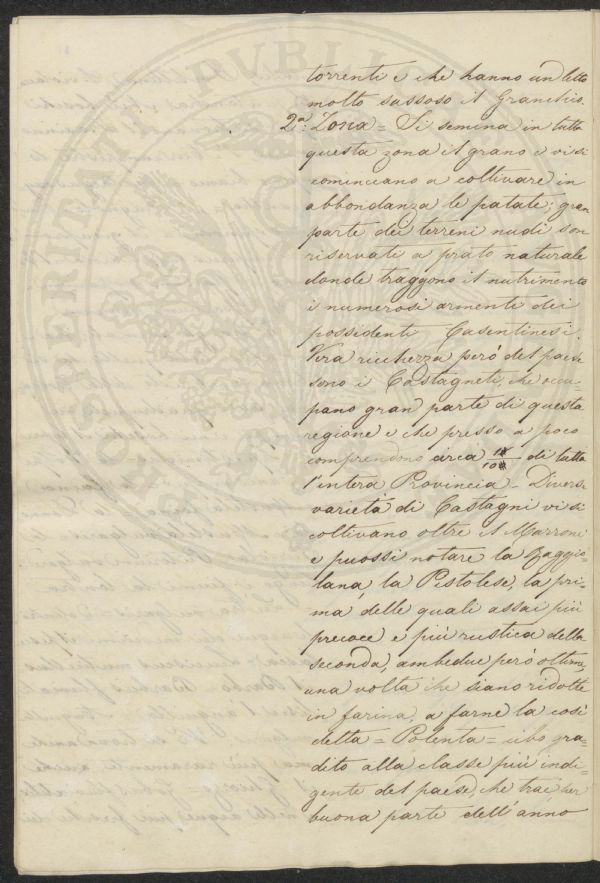 torrenti e che hanno un letto
molto sassoso il Granchio.
2ª Zona = Si semina in tutta
questa zona il grano e vi si
cominciano a coltivare in
abbondanza le patate; gran
parte dei terreni nudi son
riservati a prato naturale
donde traggono il nutrimento
i numerosi armenti dei
possidenti Casentinesi.
Vera ricchezza però del paese
sono i Castagneti, che occu-
pano gran parte di questa
regione e che presso a poco
comprendono circa di tutta
l'intera Provincia - Diverse
varietà di Castagni vi si
coltivano oltre il Marrone
e puossi notare la Raggio-
lana, la Pistolese, la pri-
ma delle quali assai più
precoce e più rustica della
seconda, ambedue però ottime,
una volta che siano ridotte
in farina, a farne la così
detta = Polenta = cibo gra-
dito alla classe più indi-
gente del paese, che trae per
buona parte dell'anno
PROSPERITATI PVBLIC